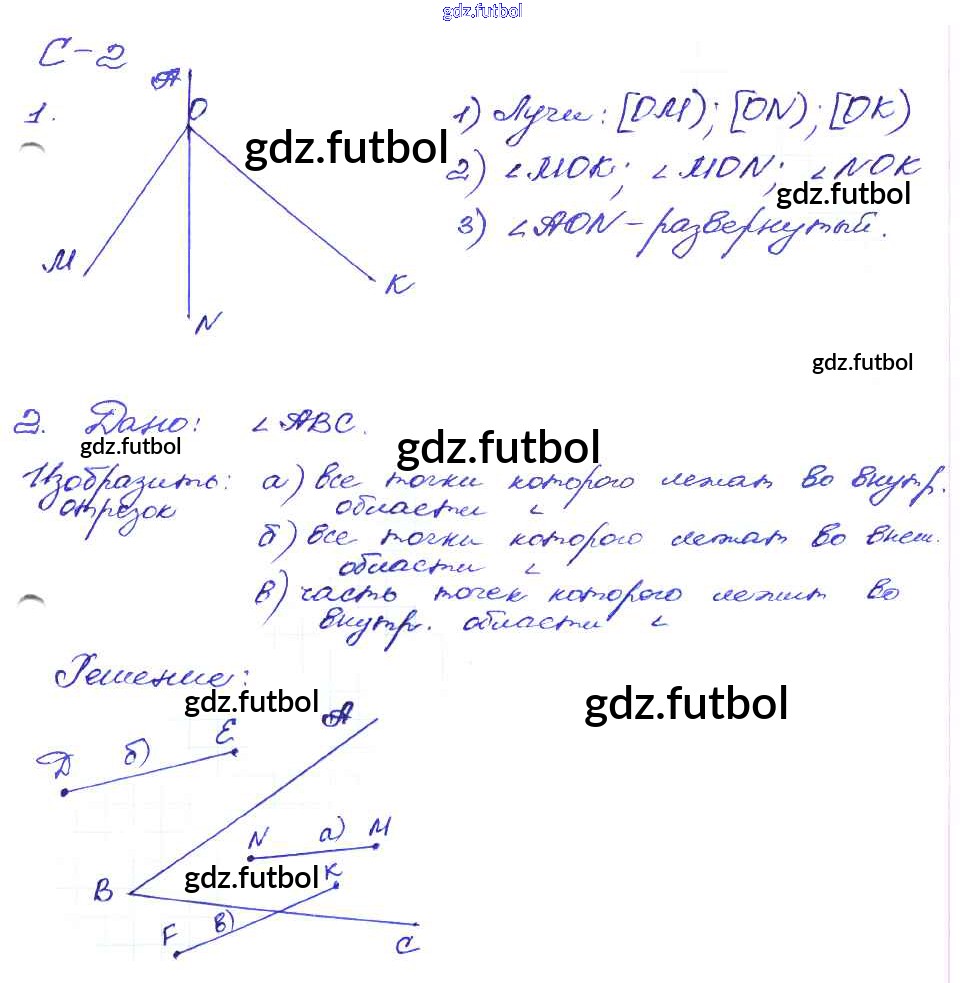 gdz.futbol
С-2
1.
A
O
M
K
N
gdz.futbol
1) Лучи: [OM); [ON); [OK)
2) ∠MOK; ∠MON; ∠NOK
gdz.futbol
3) ∠AON – развернутый.
gdz.futbol
2. Дано: ∠ABC.
gdz.futbol
gdz.futbol
Изобразить: а) все точки которого лежат во внутр.
отрезок области ∠
б) все точки которого лежат во внеш.
области ∠
в) часть точек которого лежит во
внутр. области ∠
Решение:
gdz.futbol
gdz.futbol
A
D б) E
N а) M
B
gdz.futbol
K
F в)
C